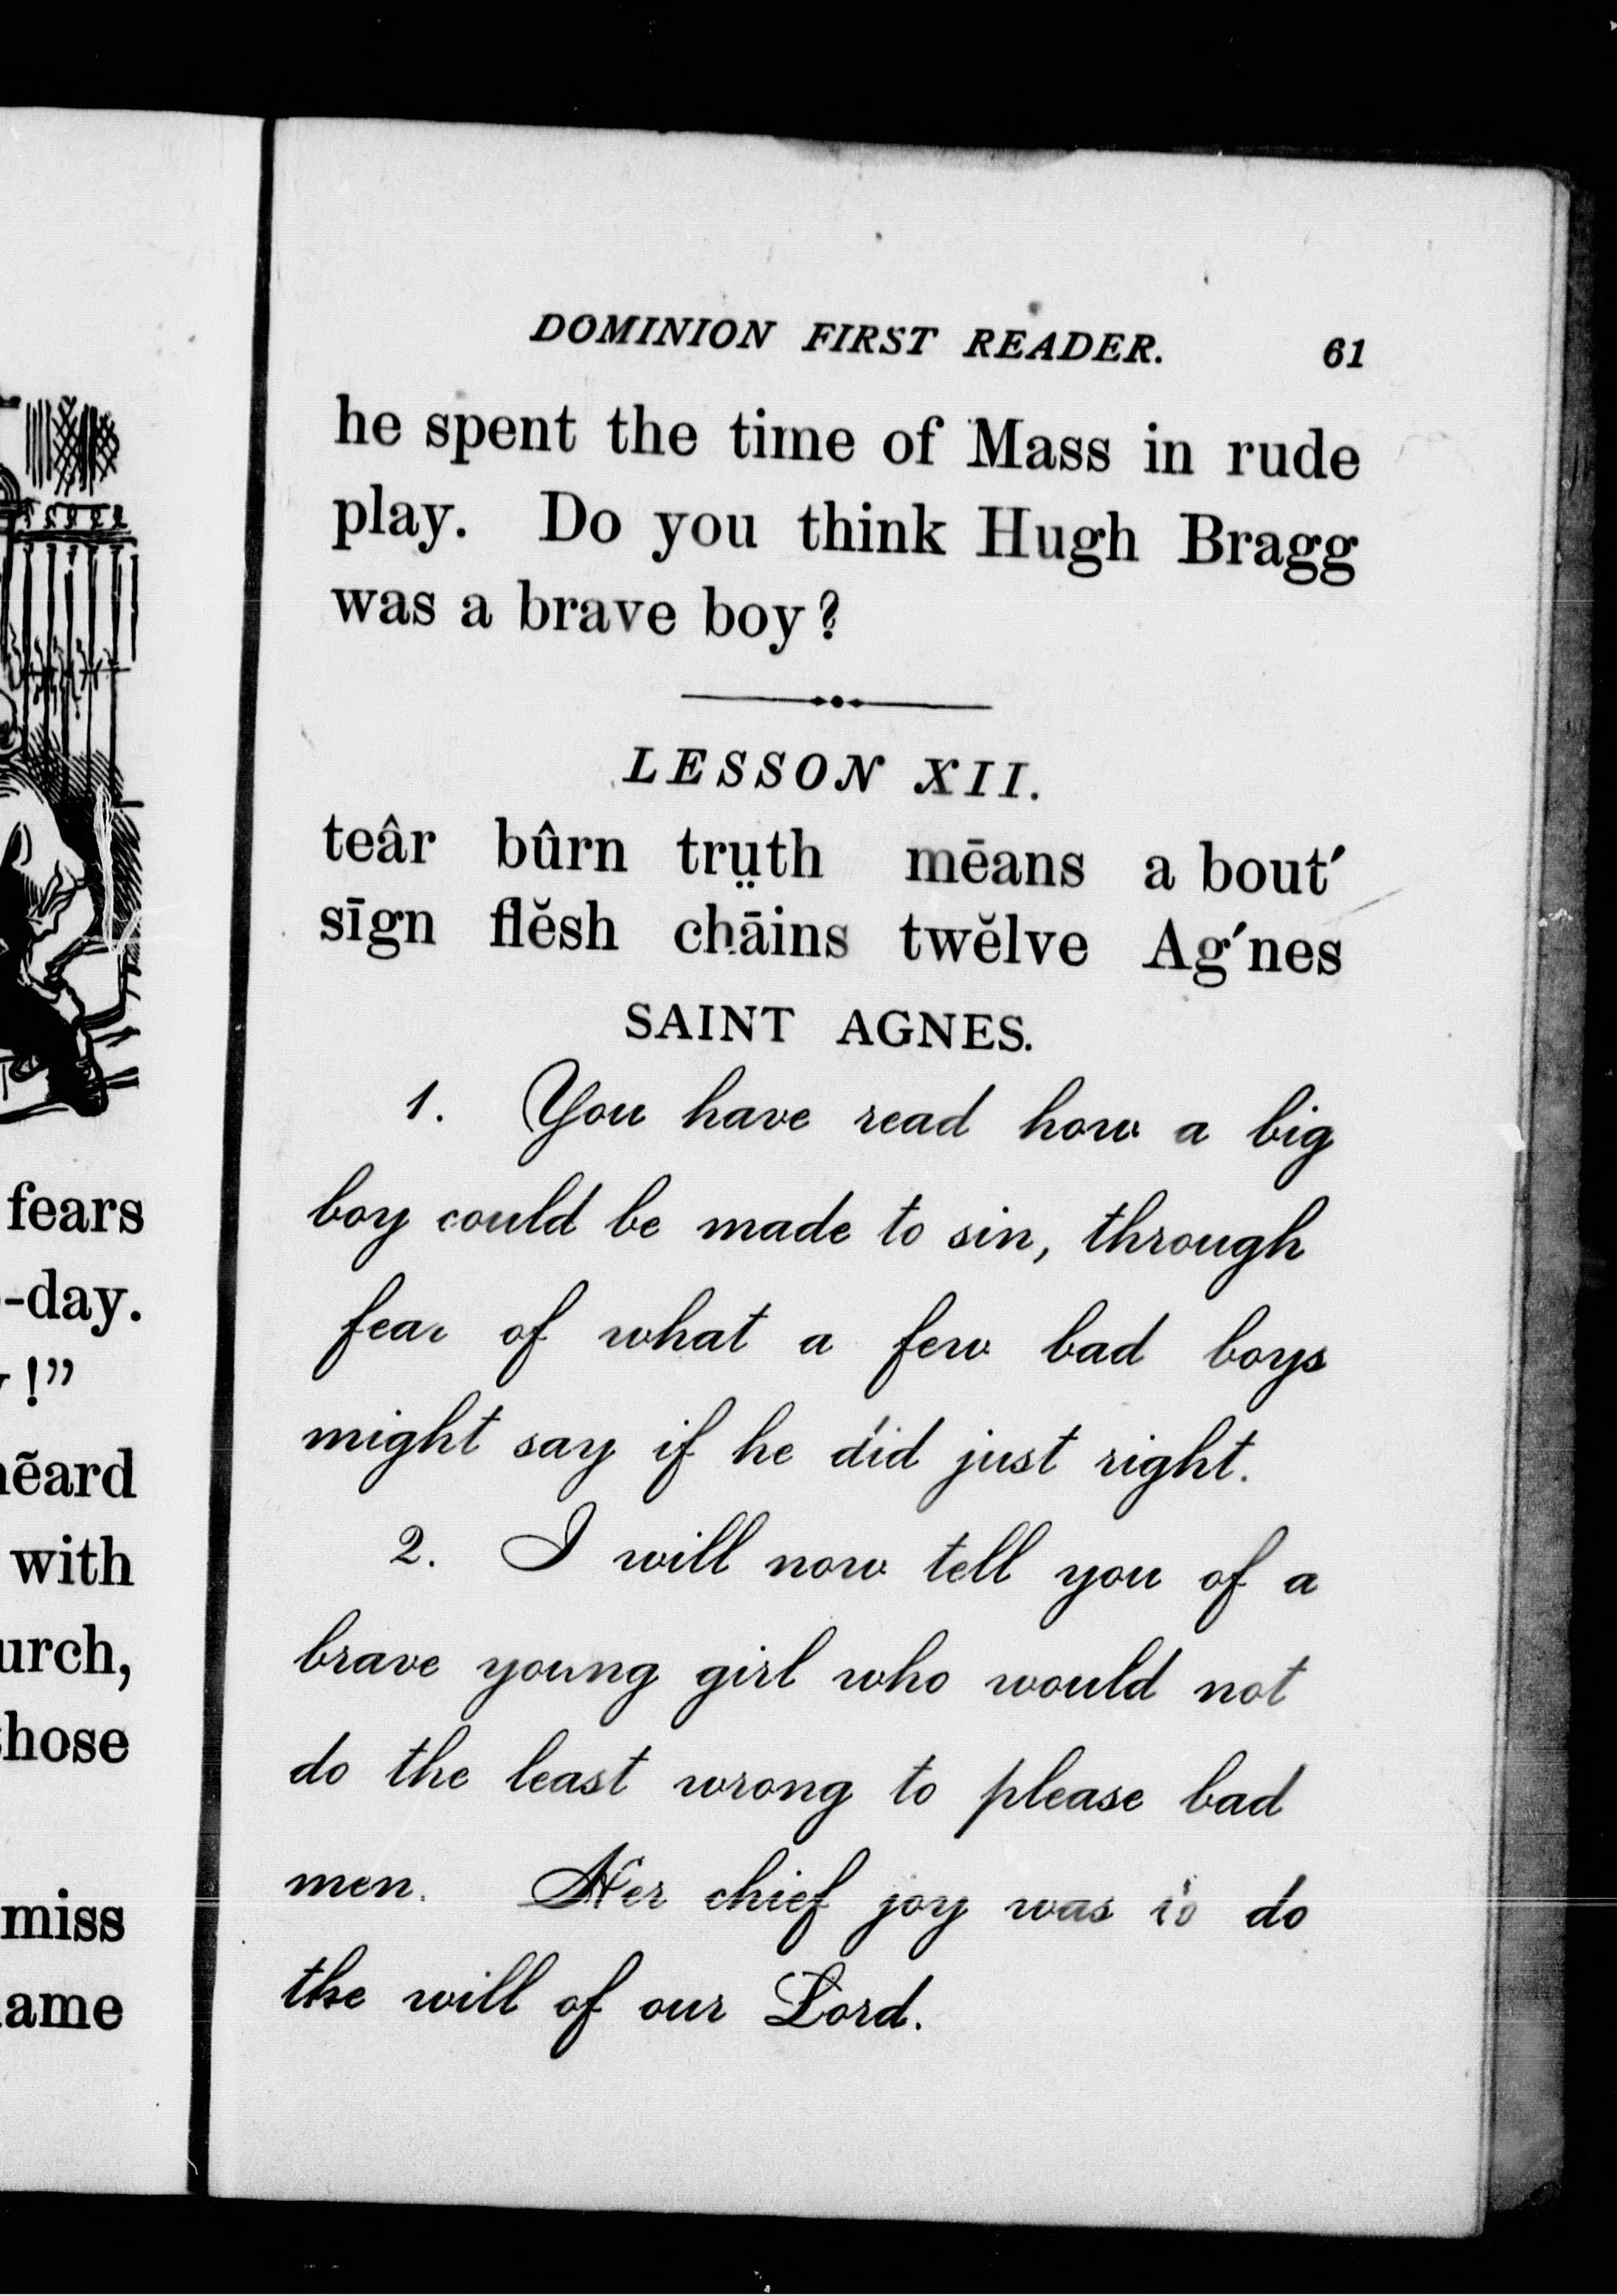 fears
-day.
!”
hẽard
with
urch,
those
miss
ame
DOMINION FIRST READER. 61
he spent the time of Mass in rude
play. Do you think Hugh Bragg
was a brave boy?
LESSON XII.
teâr bûrn trṳth mēans a bout′
sīgn flĕsh chāins twĕlve Ag′nes
SAINT AGNES.
1. You have read how a big
boy could be made to sin, through
fear of what a few bad boys
might say if he did just right.
2. I will now tell you of a
brave young girl who would not
do the least wrong to please bad
men. Her chief joy was to do
the will of our Lord.